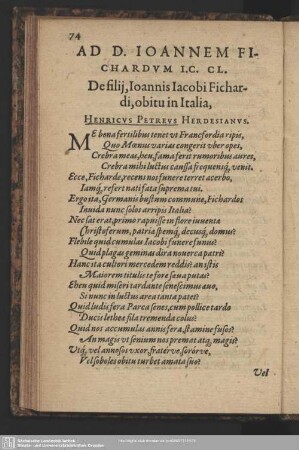 74
AD D. IOANNEM FI-
CHARDVM I.C. CL.
De filij, Ioannis Iacobi Fichar-
di, obitu in Italia,
HENRICVS PETREVS HERDESIANVS.
ME bona fertilibus tenet vt Francfordia ripis,
Quo Mœnus varias congerit vber opes,
Crebra meas, heu, fama ferit rumoribus aures,
Crebra mihi luctus caussa frequensq́, venit.
Ecce, Ficharde, recens nos funere terret acerbo,
Iamq́, refert nati fata suprema tui.
Ergo ita, Germanis bustum commune, Fichardos
Inuida nunc soles arripis Italia?
Nec sat erat, primo rapuisse in flore iuuenta
Christoferum, patriæ spemq́, decusq́, domus?
Flebile quid cumulas Iacobi funere funus?
Quid plagas geminas dira nouerca patri?
Hanc ita cultori mercedem reddis? an istis
Maiorem titulis te fore sæua putas?
Eheu quid miseri tardante senescimus æuo,
Si nunc in luctus area tanta patet?
Quid ludis fera Parca senes, cum pollice tardo
Ducis letheo fila tremenda colu?
Quid nos accumulas annis fera, stamine fuso?
An magis vt senium nos premat atq́, magis?
Vtq́, vel annosos vxor, fratérve, sorórve,
Vel soboles obitu turbet amata suo?
Vel